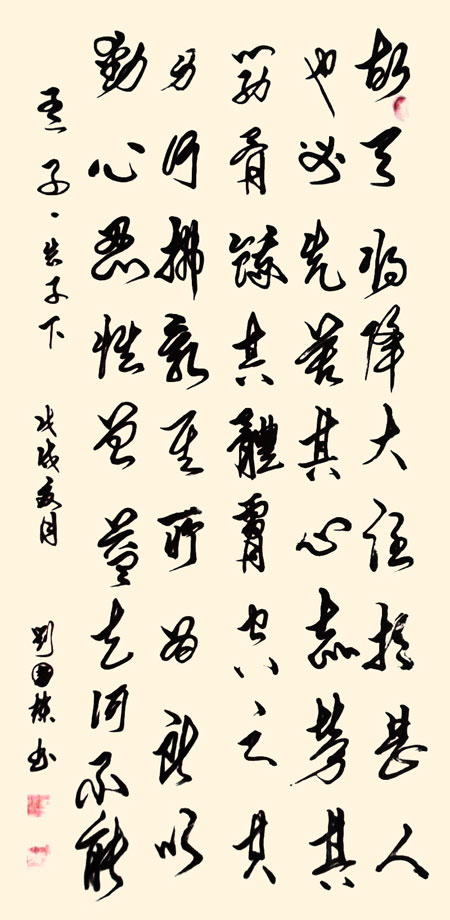 故天将降大任於甚人
也必先苦其心志劳其
筋骨餓其體膚空乏其
身行拂亂其所為所以
動心忍性曾益其所不能
孟子·告子下 戊戌夏月 劉国棟书